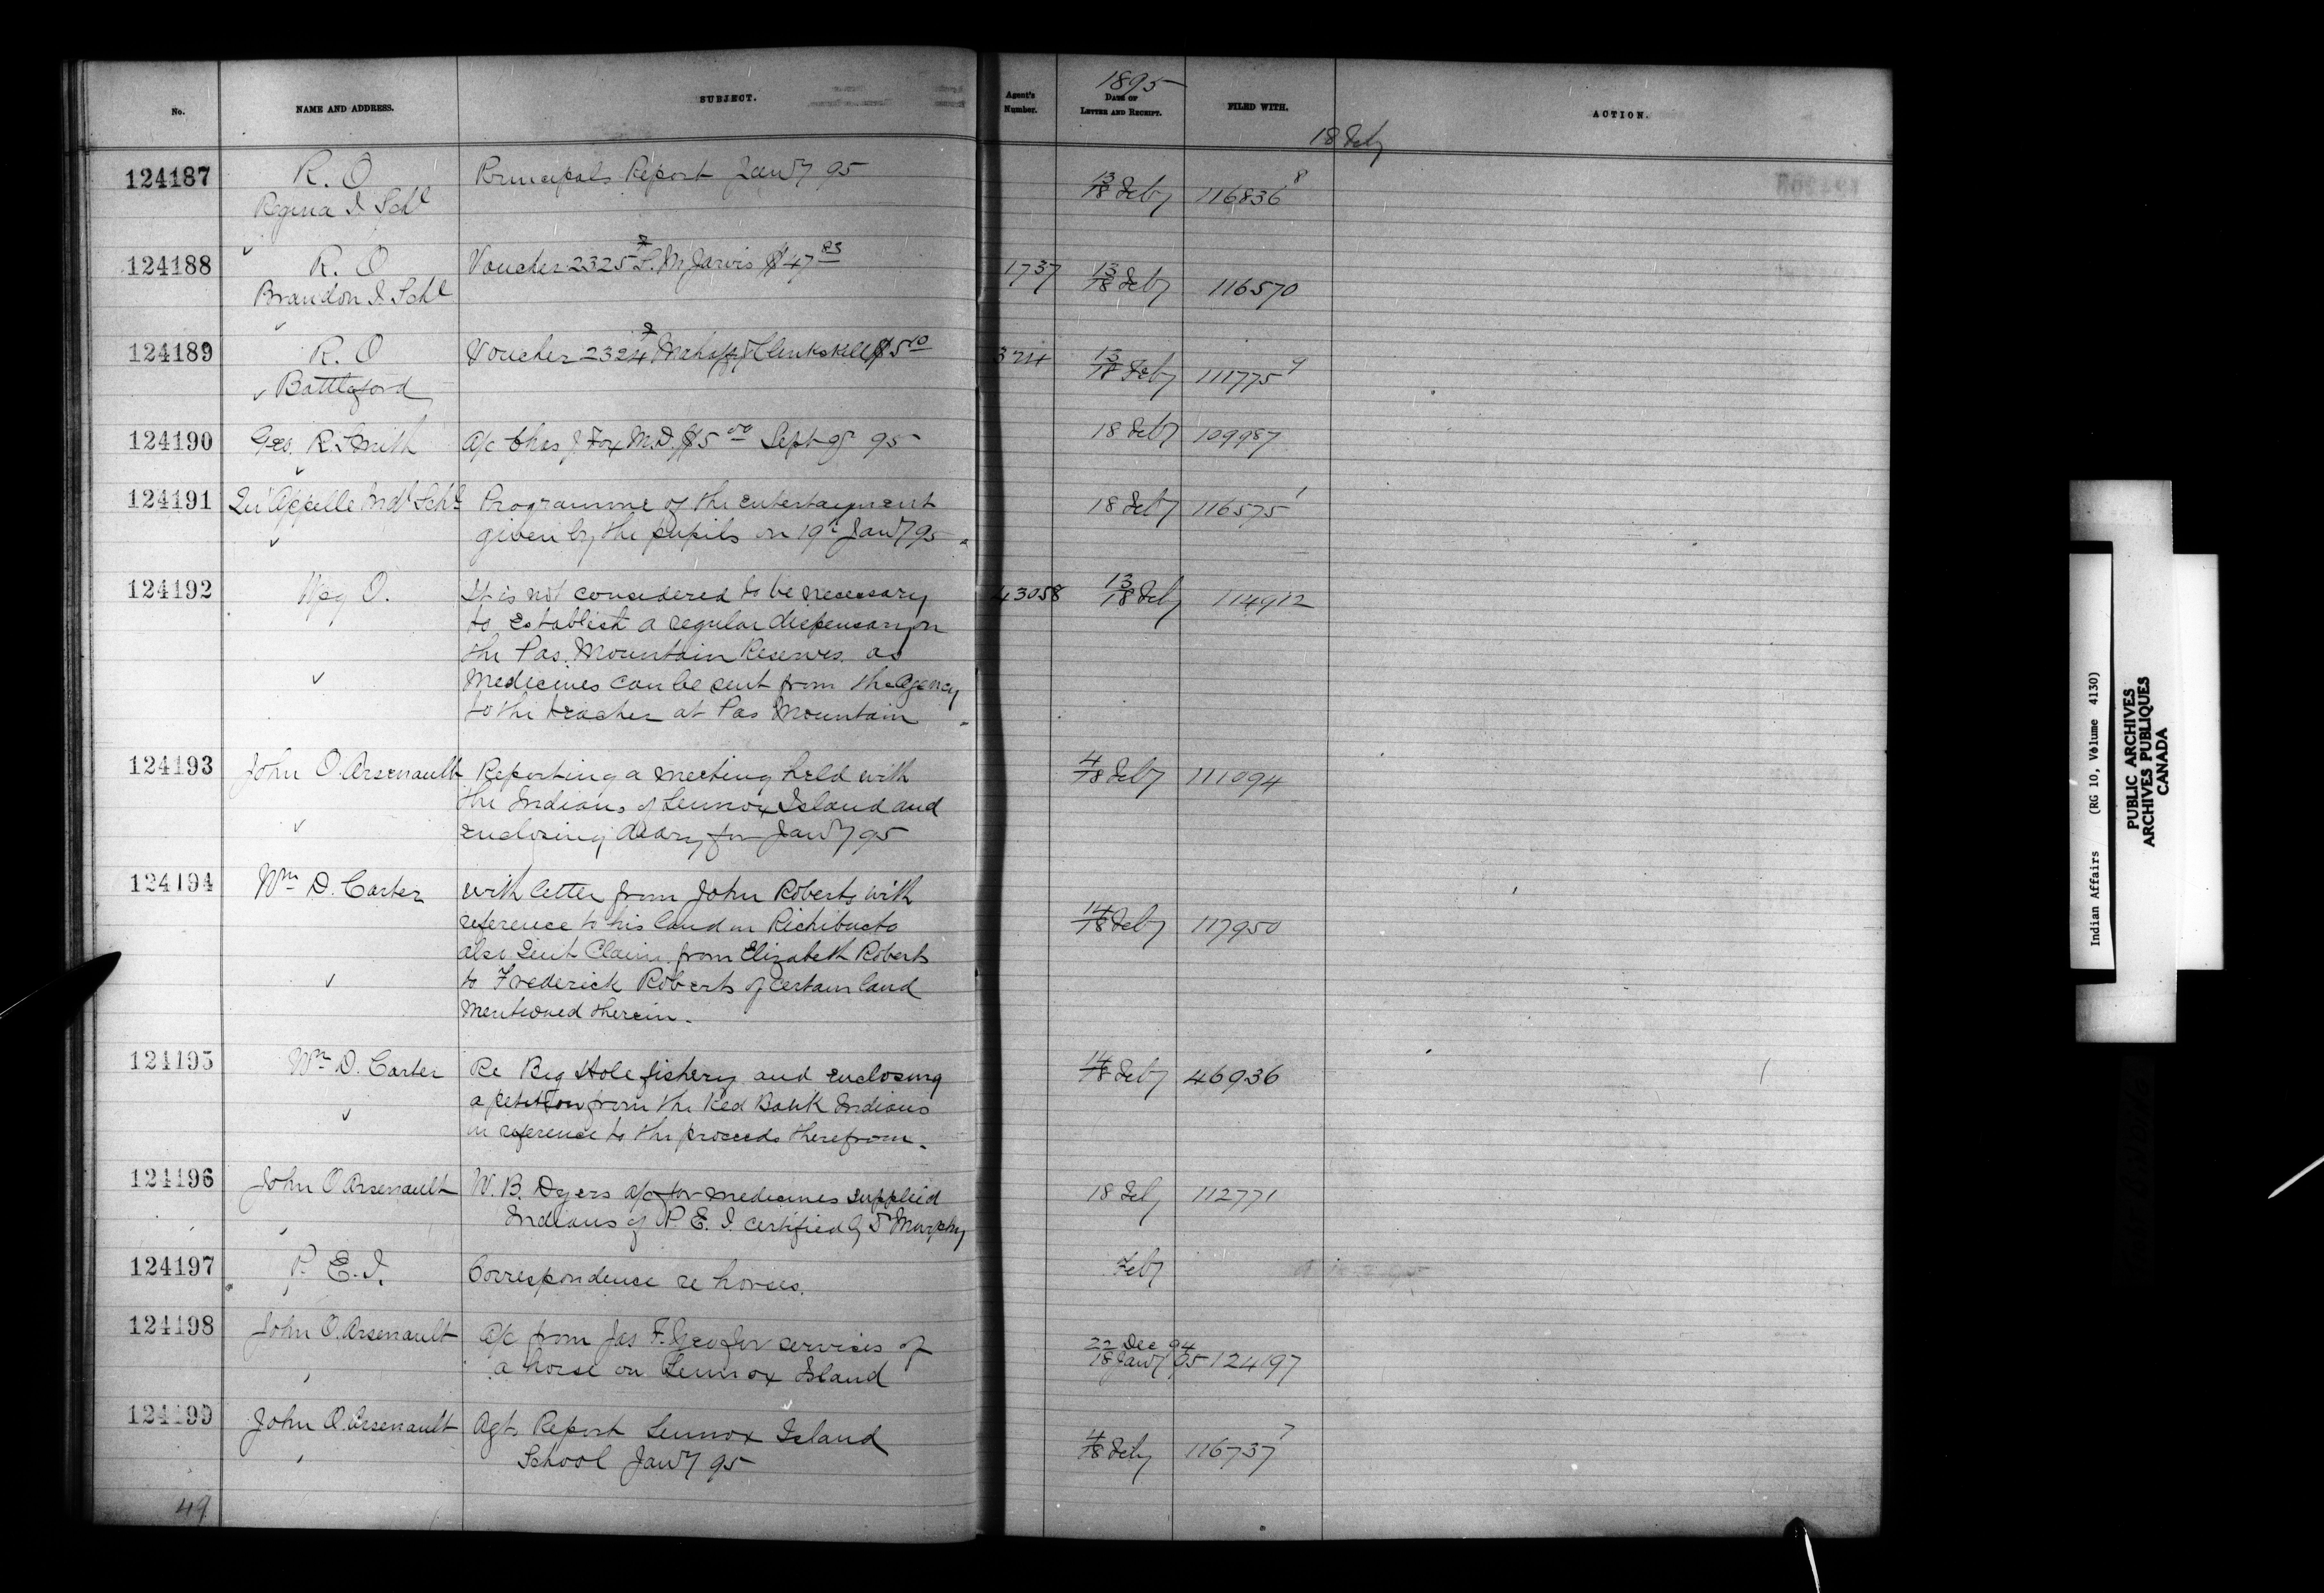 No. NAME AND ADDRESS. SUBJECT. Agent's Number. 1895 DATE OF LETTER AND RECEIPT. FILED WITH. ACTION.
18 Feby
124187 R. O Principals Report Jan'y 95 13/18 Feby 116836 8
Regina I Schl
124188 R. O Voucher 2325 S. M. Jarvis $47 1737 13/18 Feby 116570
Brandon I Schl
124189 R. O Voucher 2324 Mahaffy & Clinkskill $5 324 13/18 Feby 111775 9
Battleford
124190 Geo. R. Smith a/c Chas J. Fox M.D. $5 00 Sept 95 18 Feby 109987
124191 Qu'Appelle Indl Schl Programme of the entertaynment 18 Feby 116575 1
given by the pupils on 19th Jan'y 95
124192 Wpg O. It is not considered to be necessary 43058 13/18 Feby 114912
to establish a regular dispensary on
the Pas Mountain Reserves as
Medicines can be sent from the Agency
to the teacher at Pas Mountain
124193 John O. Arsenault Reporting a meeting held with 4/18 Feby 111094
the Indians of Lennox Island and
enclosing diary for Jan'y 95
124194 Wm D. Carter with letter from John Roberts with
reference to his land in Richibucto 14/18 Feby 117950
also Quit Claim from Elizabeth Roberts
to Frederick Roberts of certain land
mentioned therein.
124195 Wm D. Carter Re Big Hole fishery and enclosing 14/18 Feby 46936
a petition from the Red Bank Indians
in reference to the proceeds therefrom.
124196 John O Arsenault W. B. Dyers a/c for medicines supplied 18 Feby 112771
Indians of P. E. I. certified by Dr Murphy
124197 P. E. I. Correspondence re horses. Feby
124198 John O. Arsenault a/c from Jas F. for services of 22 Dec 94
a horse on Lennox Island 18 Jan'y 95 124197
124199 John O. Arsenault Agt. Report Lennox Island 4/18 Feby 116737 7
School Jan'y 95
49
Indian Affairs (RG 10, Volume 4130)
PUBLIC ARCHIVES
ARCHIVES PUBLIQUES
CANADA